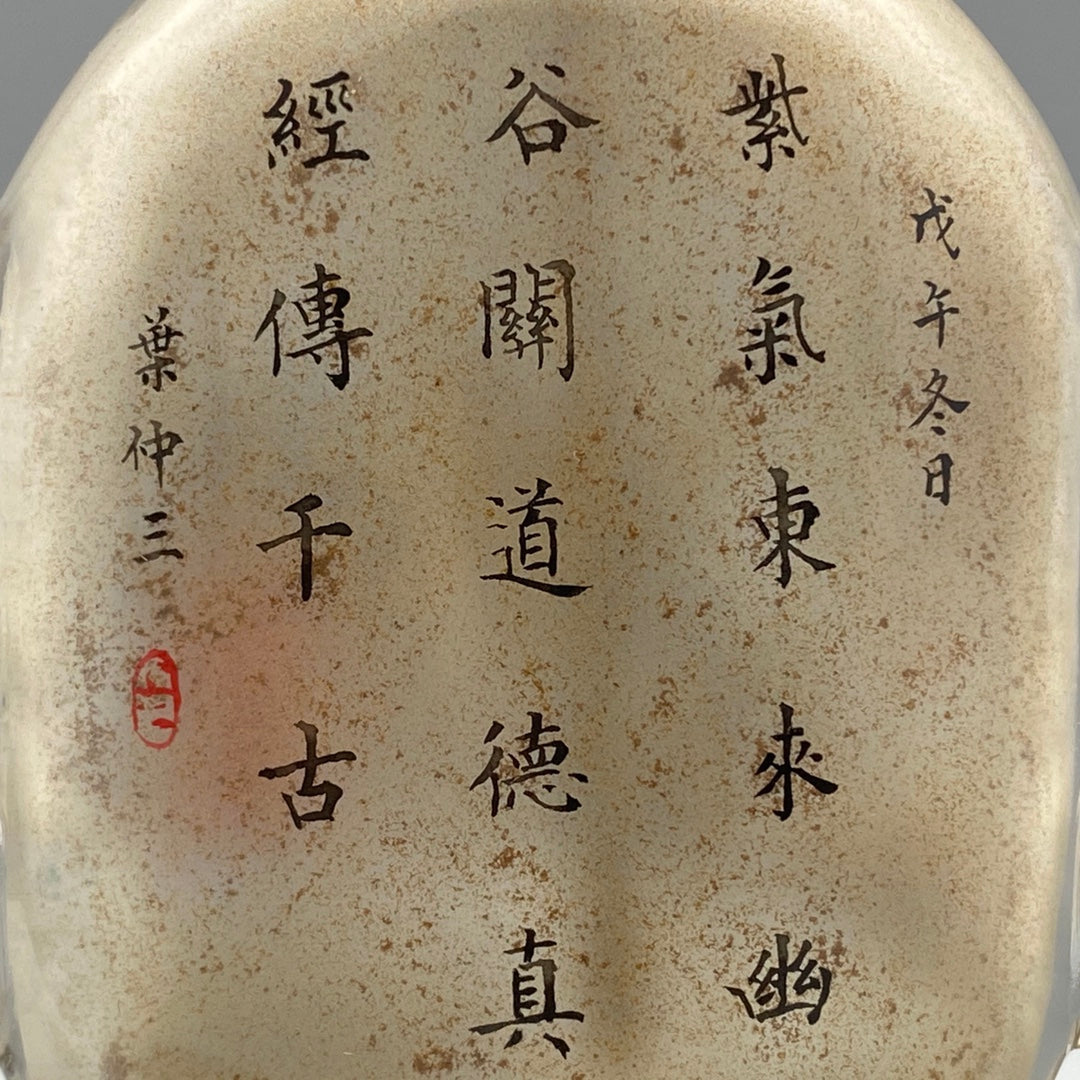 戊午冬日
紫氣東來幽
谷關道德真
經傳千古
葉仲三